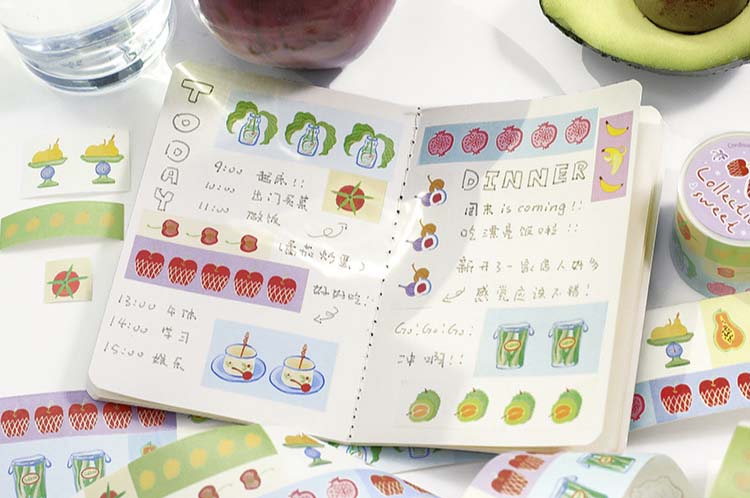 TODAY
9:00 起床!!
10:00 出门买菜
11:00 做饭
(番茄炒蛋)
好好吃!!
13:00 午休
14:00 学习
15:00 娱乐
DINNER
周末 is coming!!
吃漂亮饭啦!!
新开了一家店人好多
感觉应该不错!
Go! Go! Go!
冲啊!!
Collect
sweet